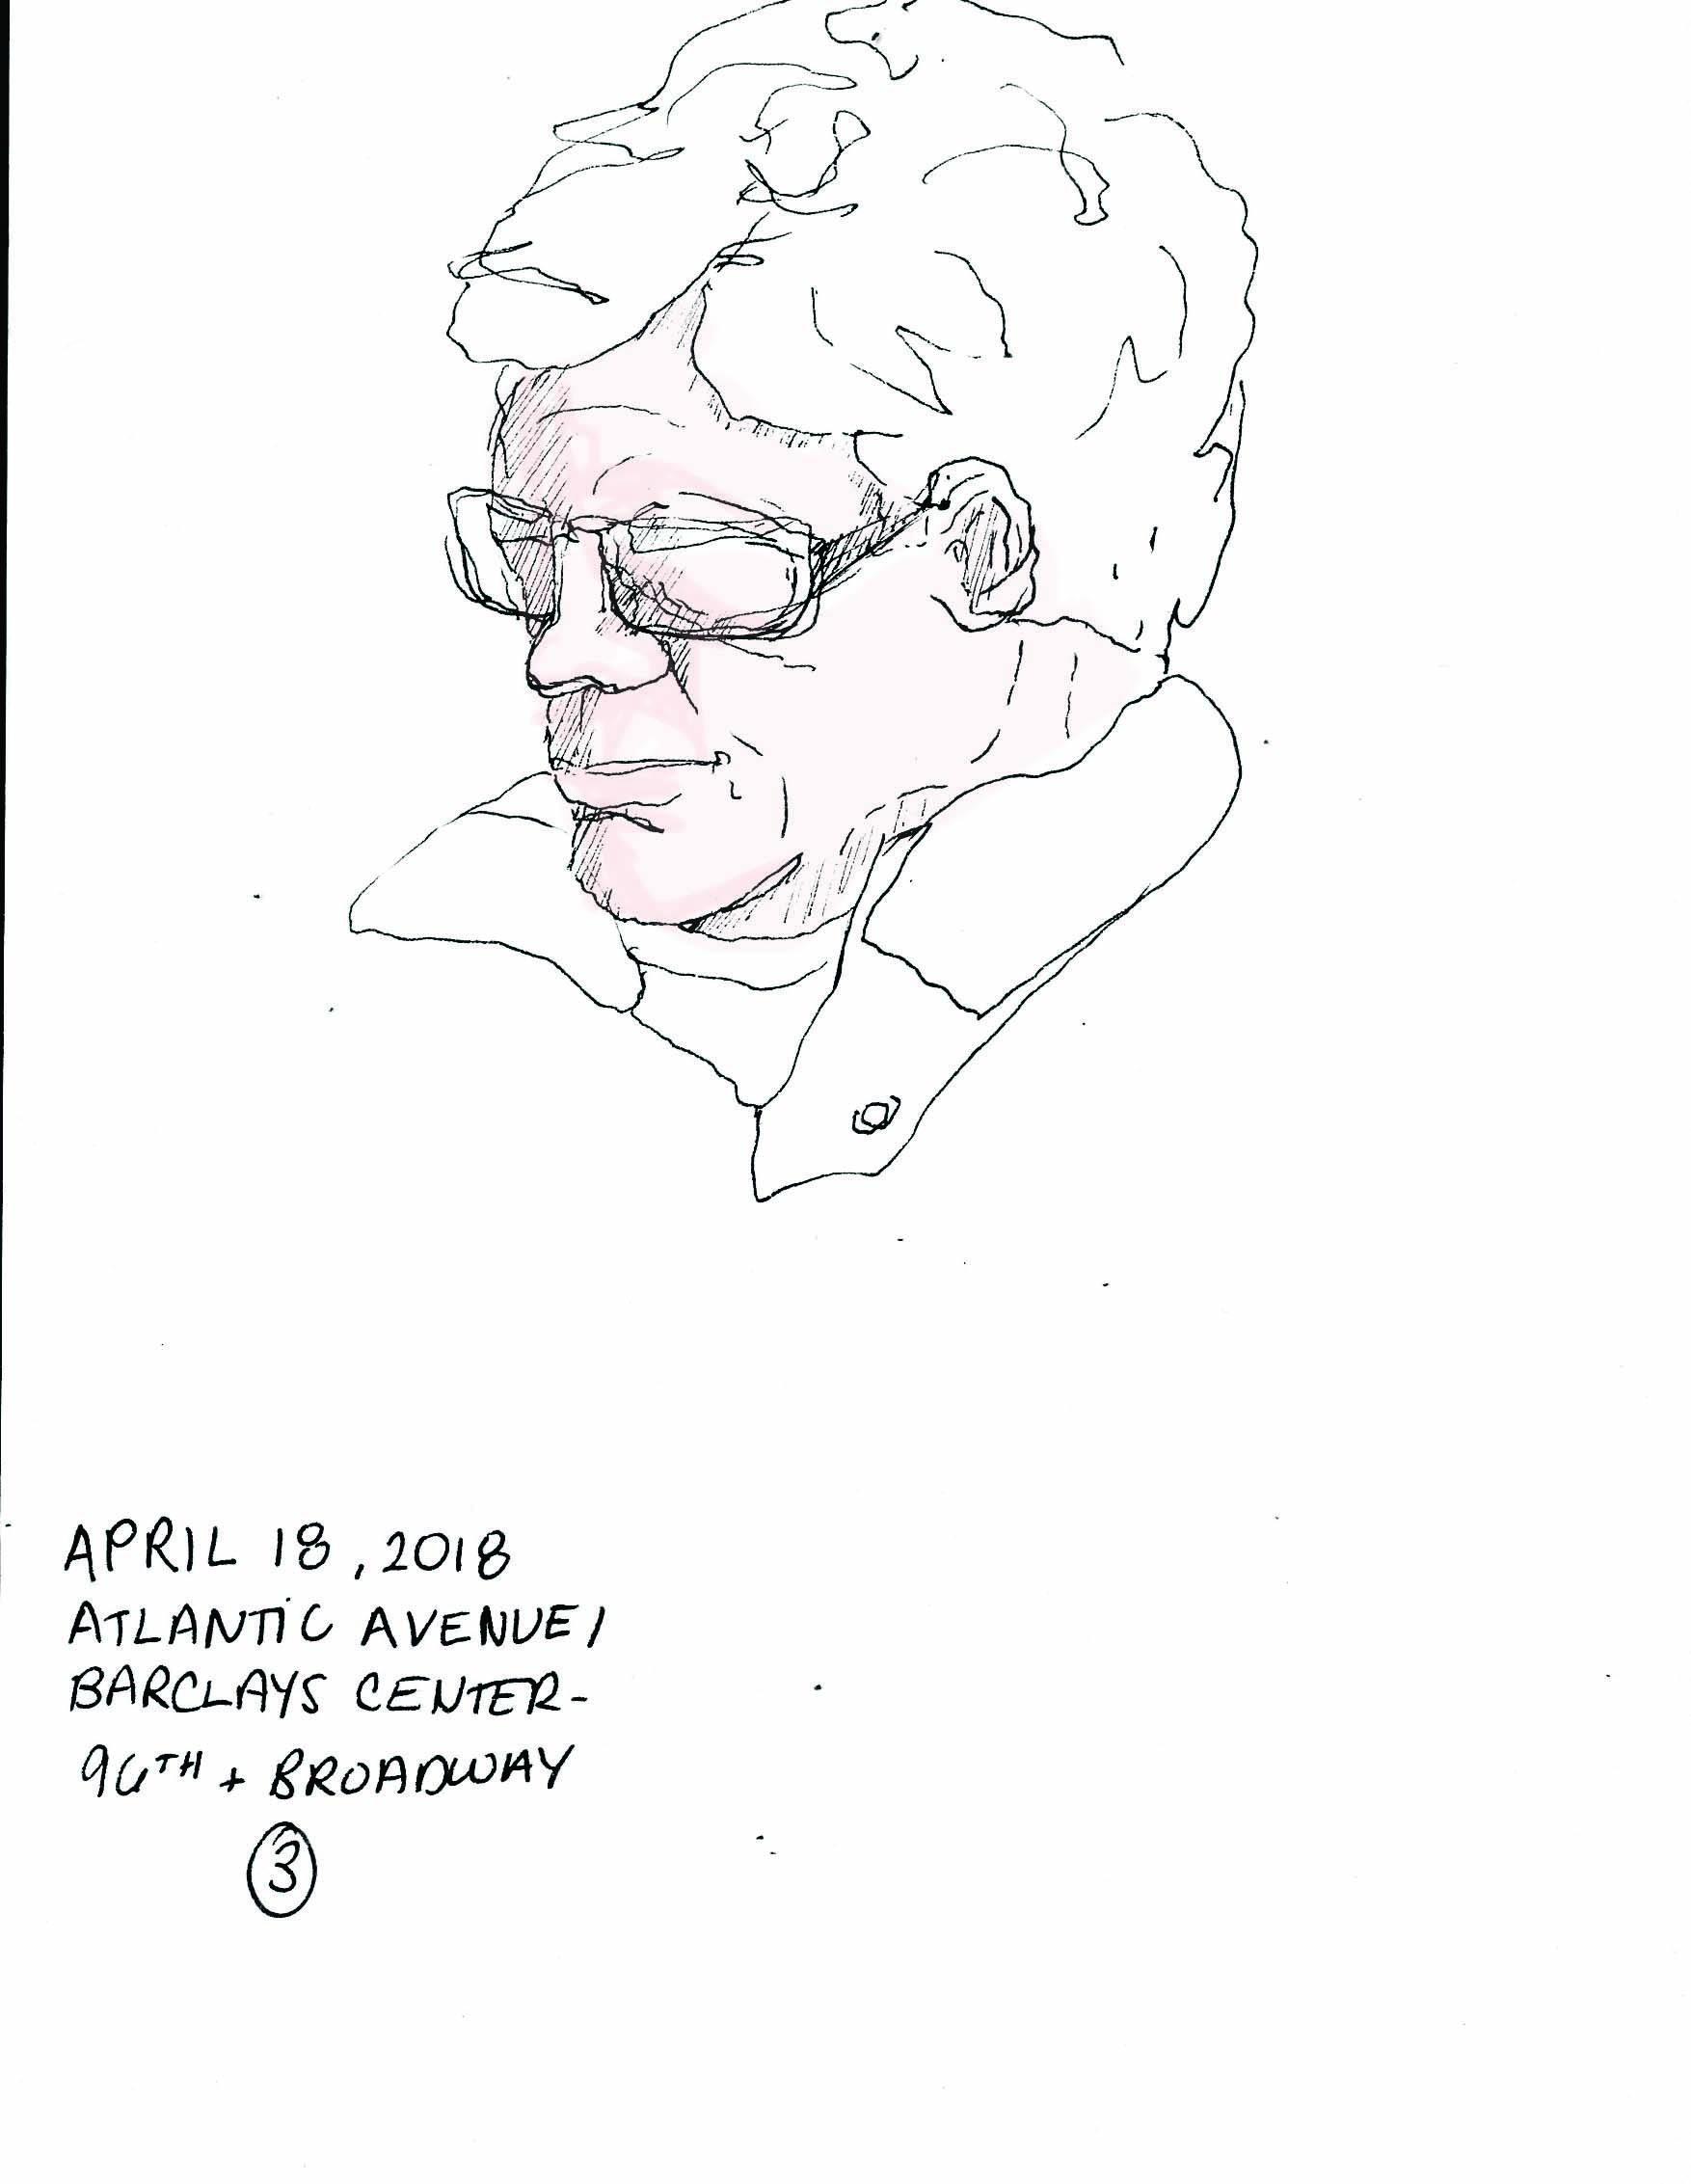 APRIL 18, 2018
ATLANTIC AVENUE/
BARCLAYS CENTER-
96TH + BROADWAY
3